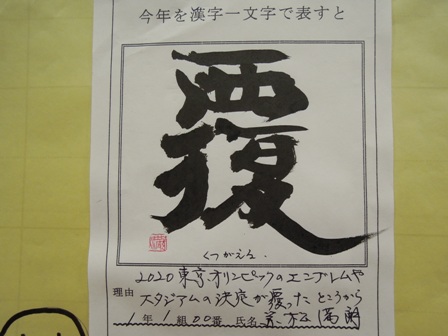 今年を漢字一文字で表すと
覆
くつがえる
2020東京オリンピックのエンブレムや
理由 スタジアムの決定が覆ったところから
1年1組00番 氏名